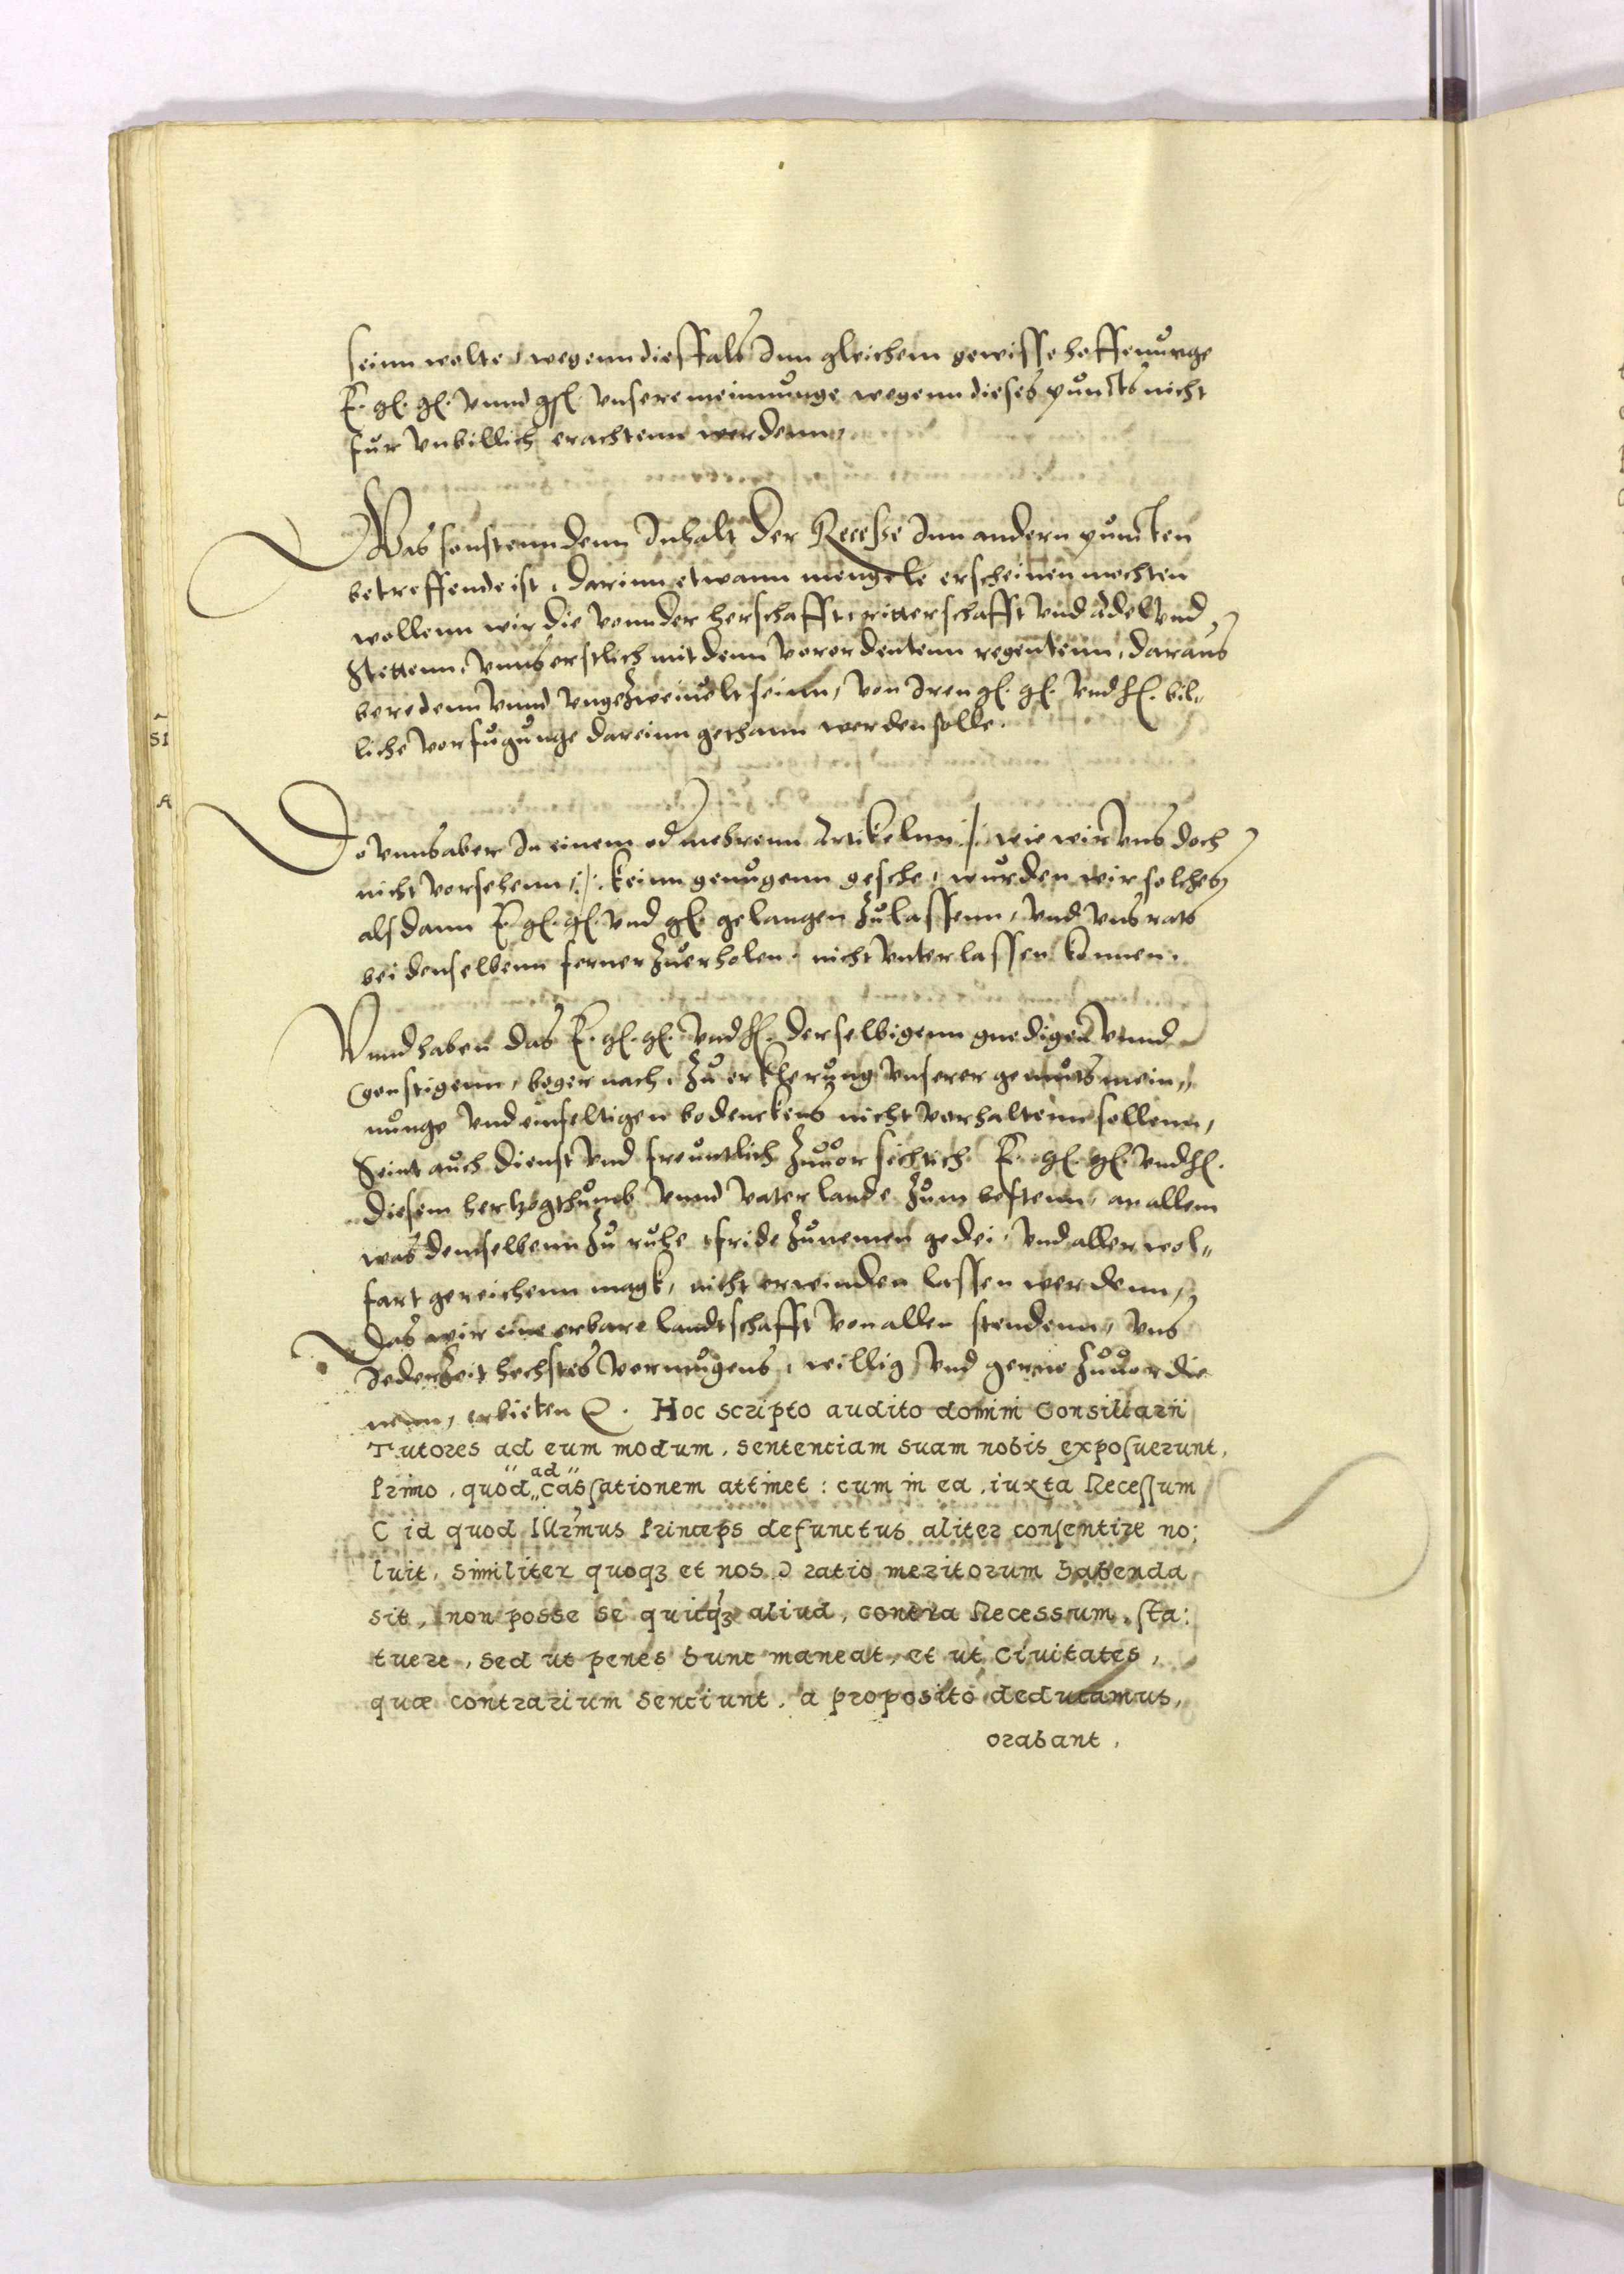 seinn wolte, wegenn diesfals Inn gleichem gewisse hoffenunge
E. gl. gl. vnnd gsl. vnsere meinnunge wegenn dieses puncts nicht
fur vnbillich erachtenn werdenn,
Was sonstenn denn Inhalt der Recesse Inn andern puncten
betreffende ist, darinn etwann mengele erscheinen mochten
wollenn wir die vonn der herschafft ritterschafft vnd adel vnd
Stettenn, vnns erstlich mit denn verordentenn regentenn, daraus
beredenn vnnd vngezweiuelt seinn, von Iren gl. gl. vnd sl. bil„
liche vorfugunge dareinn gethann werden solle.
Do vnns aber In einem od mehrenn Artikelnn ·/· wie wir vns doch
nicht vorsehenn, ·/· keinn genugenn gesche, wurden wir solches
als dann E. gl. gl. vnd gl. gelangen zu lassenn, vnd vns rats
bei denselbenn ferner zuerholen, nicht vnterlassen konnen.
Vnnd haben das E. gl. gl. vnd sl. derselbigenn gnedigen vnnd
gonstigenn, beger nach, zu erklerung vnserer gemuts mein„
nunge vnd einfeltigen bedenckens nicht verhaltenn sollenn,
Seint auch dienst vnd freuntlich zuuorsichtich E. gl. gl. vnd sl.
diesem hertzogthumb vnnd vaterlande zum bestenn, an allem
was demselbenn zu ruhe, fride zunemen gedei, vnd aller wol„
fart gereichenn magk, nicht erwinden lassen werdenn,
Das wir eine erbare landtschafft von allen stendenn, vns
Iederzeit hechstes vermugens, willig vnd gerne zuuordie
nenn, erbieten. Hoc scripto audito domini Consiliarii
Tutores ad eum modum, sentenciam suam nobis exposuerunt,
Primo, quod ad cassationem attinet: cum in ea, iuxta Recessum
C id quod Illr̃mus Princeps defunctus aliter consentire no:
luit, similiter quoqꝫ et nos Ↄ ratio meritorum habenda
sit, non posse se quicqꝫ aliud, contra Recessum, sta:
tuere, sed ut penes hunc maneat, et ut Civitates,
quæ contrarium senciunt, a proposito deducamus,
orabant,
51
A